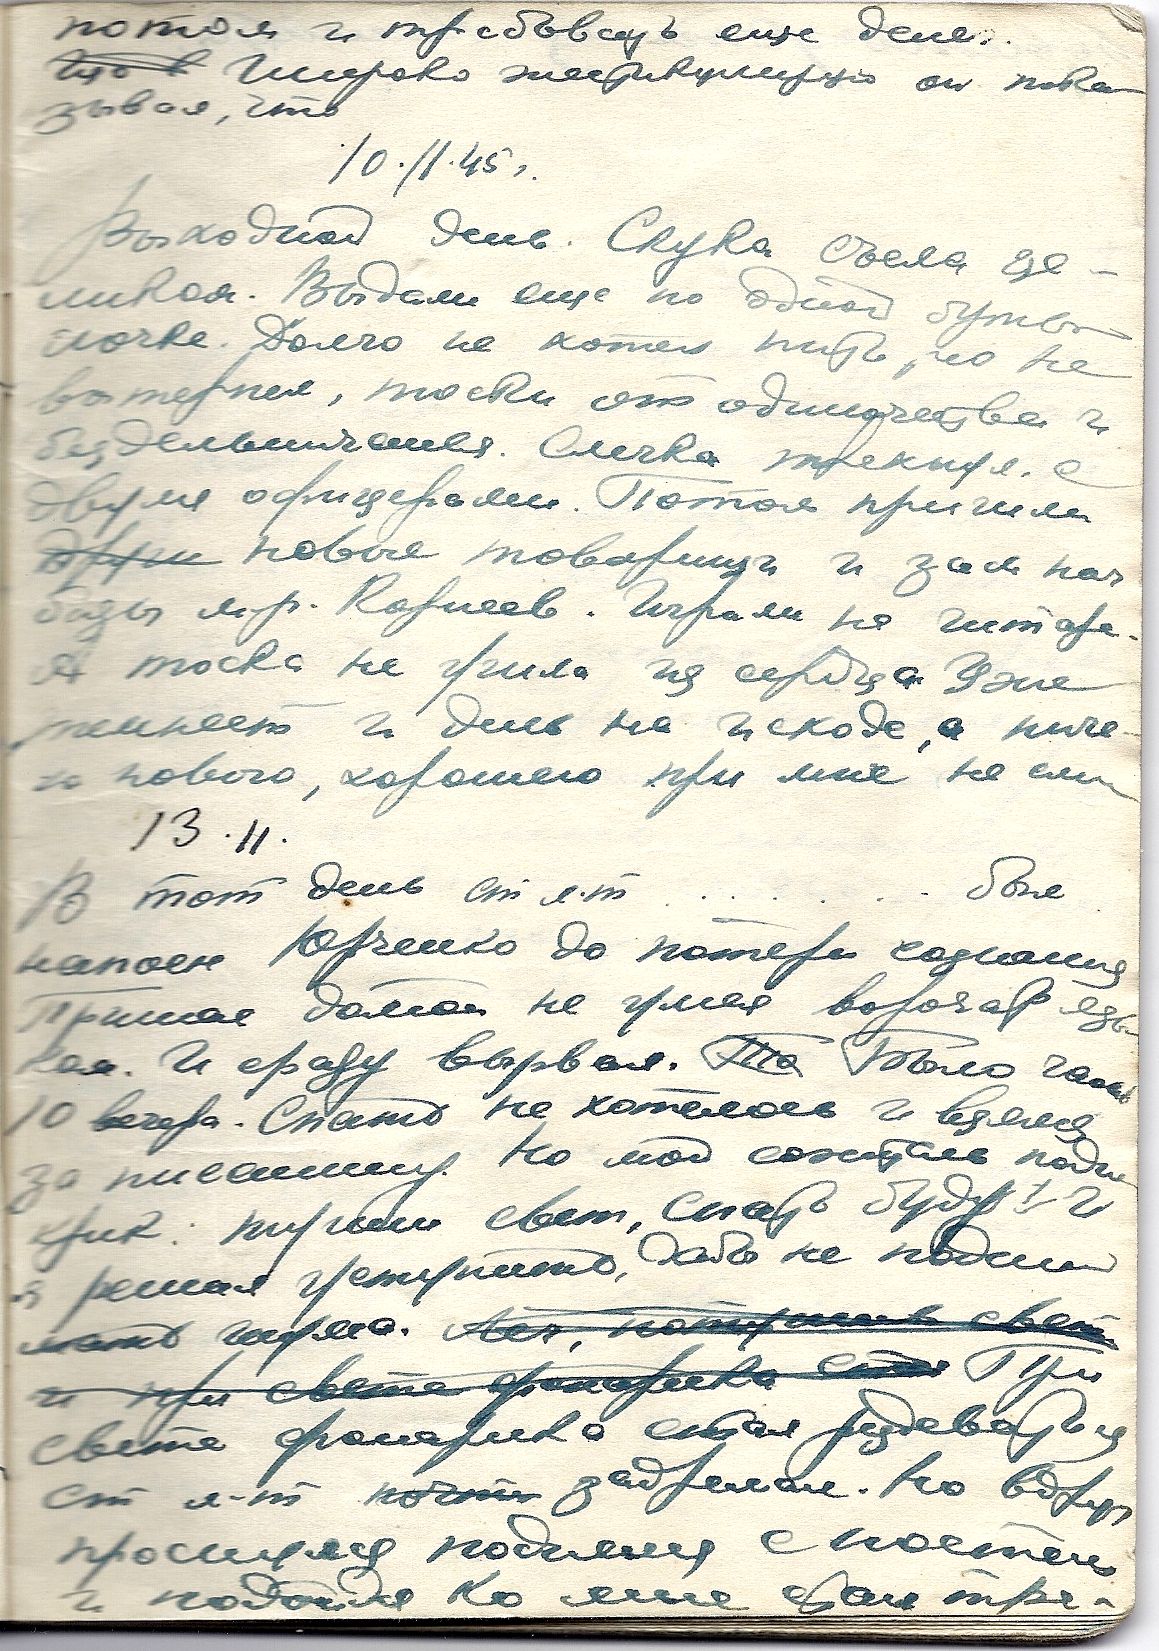 потом и требовать еще денег.
Что в Широко жестикулируя он пока
зывал, что
10.11.45 г.
Выходной день. Скука съела це-
ликом. Выдали еще по одной буты-
лочке. Долго не хотел пить, но не
вытерпел, тоски от одиночества и
бездельничанья. Слегка трекнул с
двумя офицерами. Потом пришли
други новые товарищи и зам нач
базы м-р. Корнеев. Играли на гитаре.
А тоска не ушла из сердца Уже
темнеет и день на исходе, а ниче-
го нового, хорошего при мне не
13.11.
В тот день ст л-т . . . . . . . был
напоен Юрченко до потери сознания
Пришел домой не умея ворочать язы-
ком. И сразу вырвал. То Было часов
10 вечера. Спать не хотелось и взялся
за писанину. Но мой сожитель поднял
крик: туши свет, спать буду! И
я решил уступить, дабы не подни
мать шума. Лег, потушив свет
и при свете фонарика стал При
свете фонарика стал раздеваться
ст л-т почти задремал. Но вдруг
проснулся поднялся с постели
и подойдя ко мне стал тре-